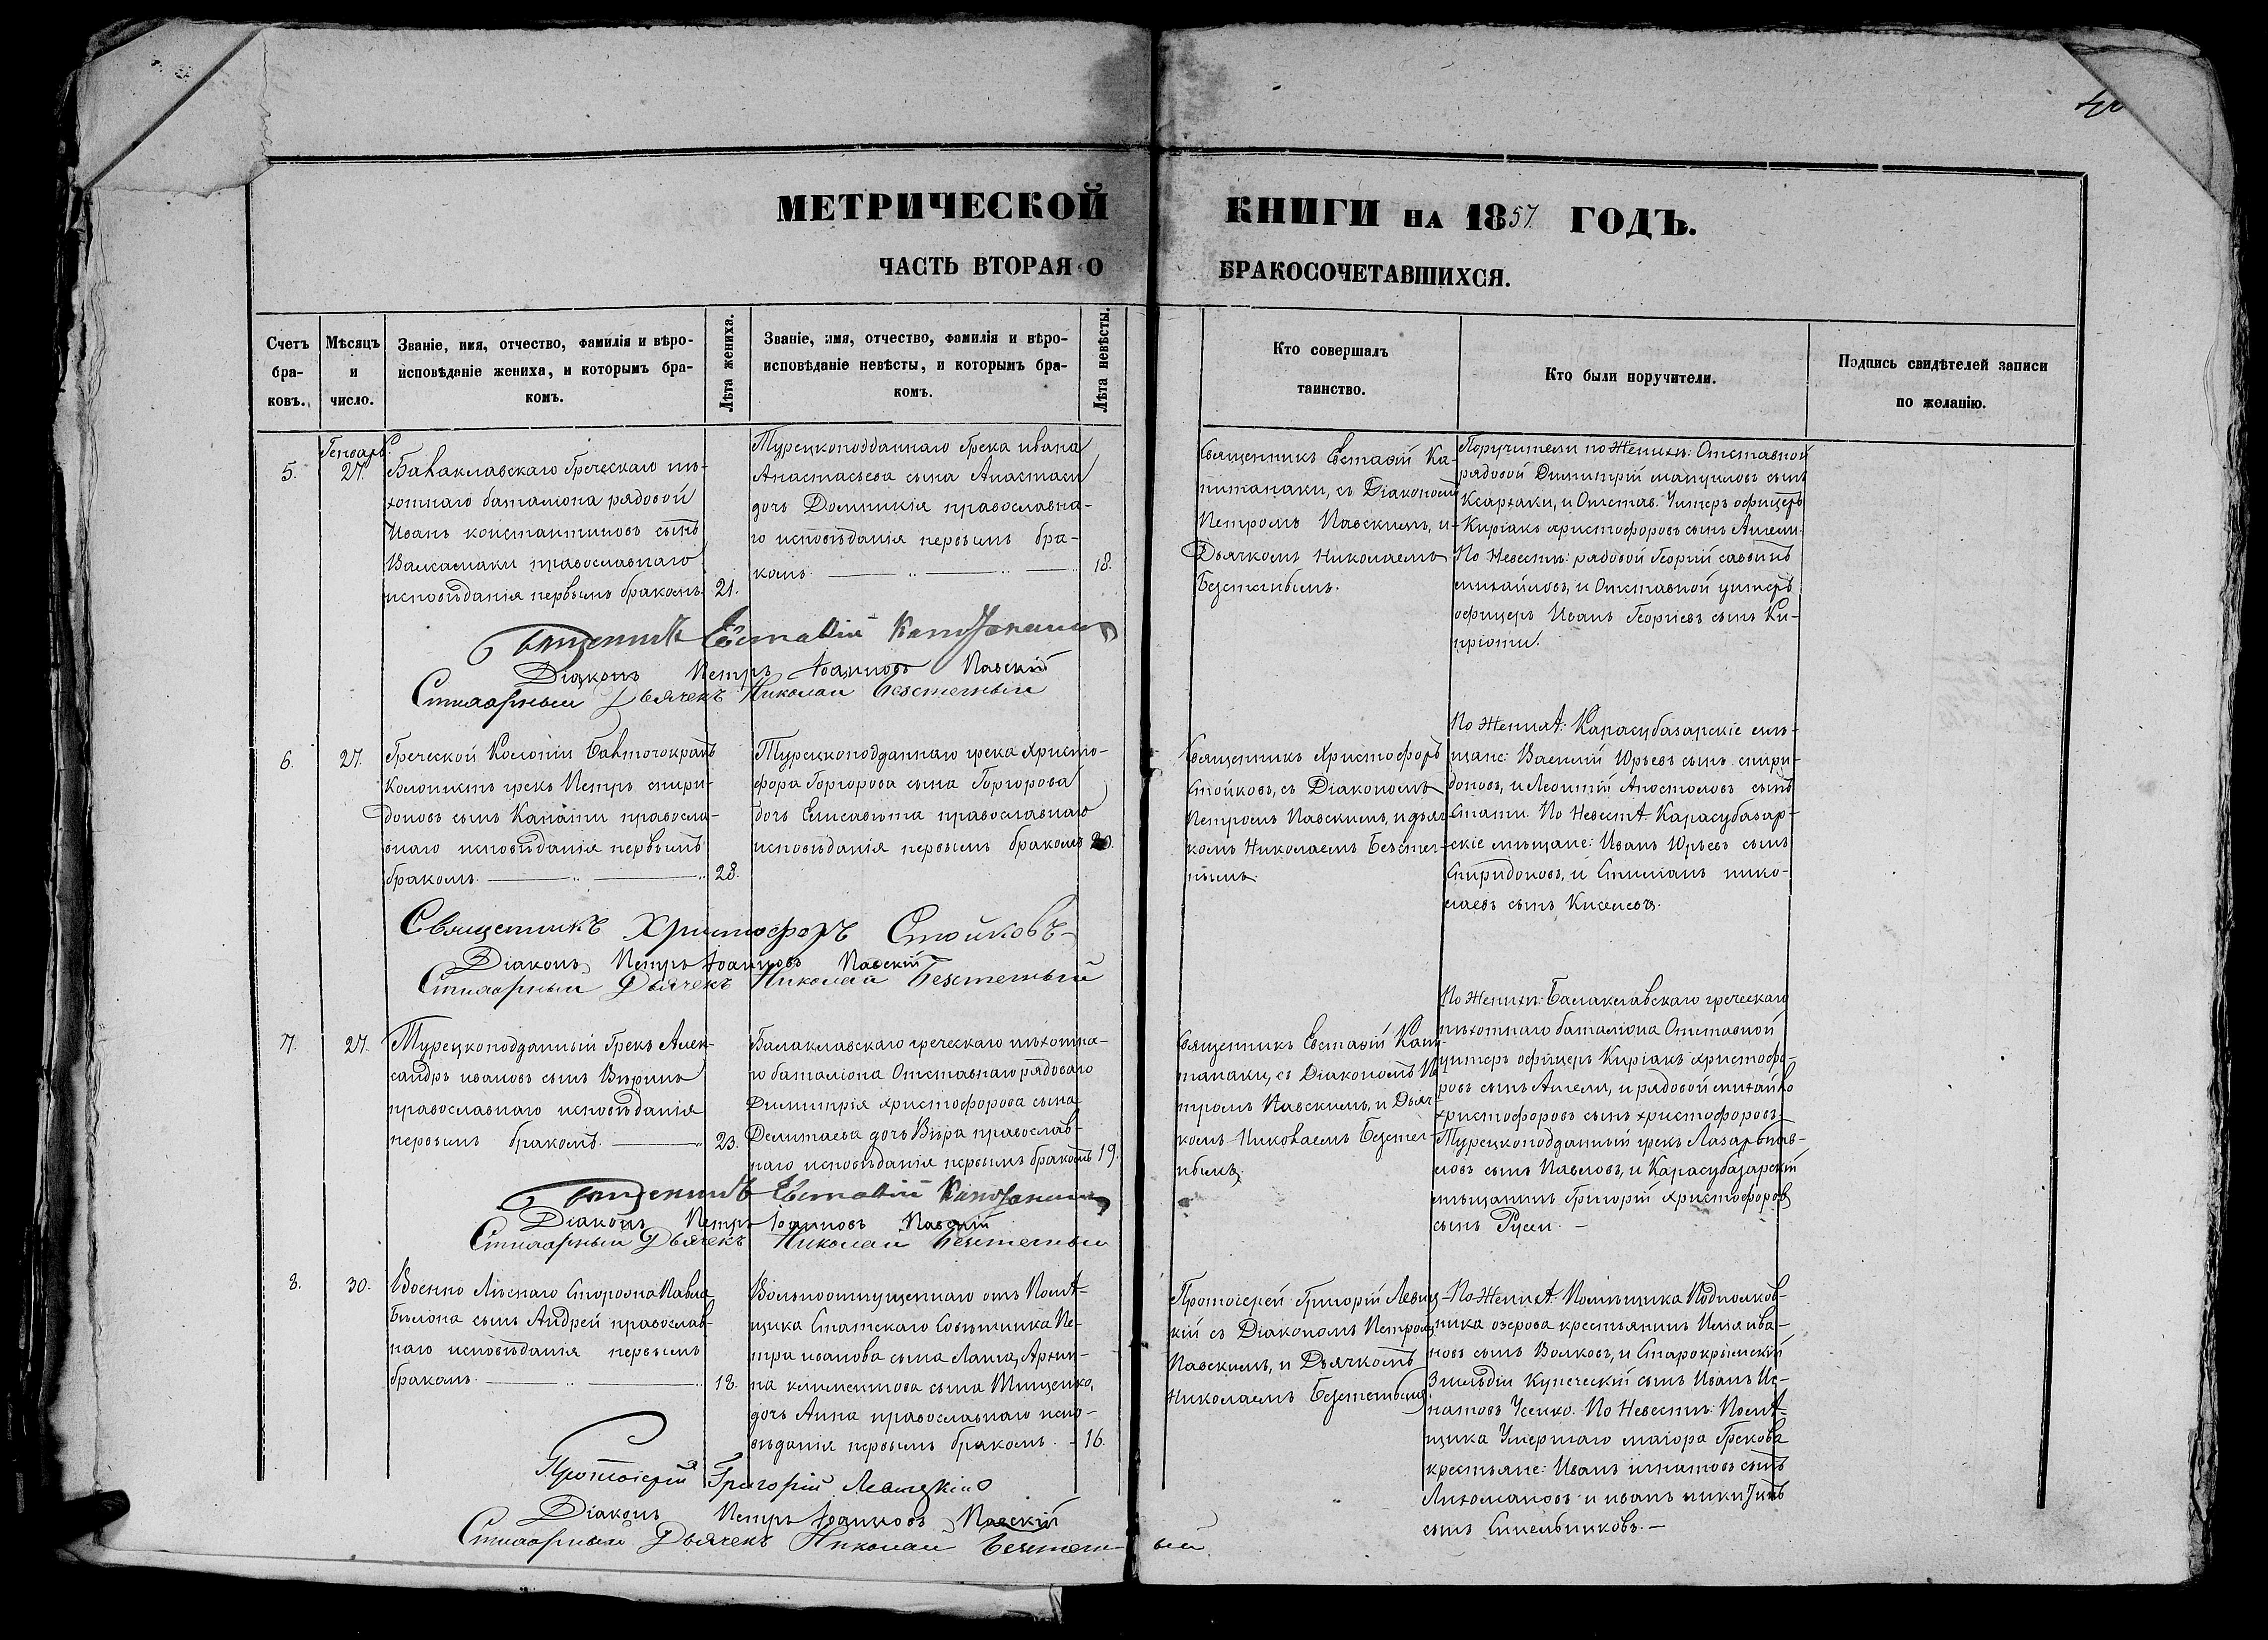 МЕТРИЧЕСКОЙ КНИГИ НА 1857 ГОДЪ.
ЧАСТЬ ВТОРАЯ О БРАКОСОЧЕТАВШИХСЯ.
Счетъ бра-ковъ.
Мѣсяцъ и число.
Званіе, имя, отчество, фамилія и вѣро-
исповѣданіе жениха, и которымъ бра-
комъ.
Лѣта жениха.
Званіе, имя, отчество, фамилія и вѣро-
исповѣданіе невѣсты, и которымъ бра-
комъ.
Лѣта невѣсты.
Кто совершалъ
таинство.
Кто были поручители.
Подпись свидѣтелей записи
по желанію.
5.
Генварь
27.
Балаклавскаго Греческаго пѣ-
хотнаго баталіона рядовой
Иванъ константиновъ сынъ
православнаго
исповѣданія первымъ бракомъ. 21.
Турецкоподданнаго Грека ивана
Анастасьева сына Анастаси
дочь Домникія православна-
го исповѣданія первымъ бра-
комъ. 18.
Священникъ Евстафій Ка-
питанаки, съ Діакономъ
Петромъ Павскимъ, и
Дьячкомъ Николаемъ
Безстенымъ.
Поручители по Женихѣ: Отставной
рядовой Димитрій мануиловъ сынъ
и Отстав. Унтеръ офицеръ
Киріакъ христофоровъ сынъ Ангели.
По Невестѣ: рядовой Георгій савоинъ
михайловъ, и Отставной унтеръ
офицеръ Иванъ Георгіевъ сынъ Ки-
пріоти.
Священникъ Евстафій Капитанаки
Діаконъ Петръ Іоанновъ Павскій
Стихарный Дьячекъ Николай Безстеный
6.
27.
Греческой Колоніи
колонистъ грекъ Петръ спири-
доновъ сынъ православ-
внаго исповѣданія первымъ
бракомъ. 28.
Турецкоподданнаго грека Христо-
фора Горгорова сына Горгорова
дочь Елисавѣта православнаго
исповѣданія первымъ бракомъ 20.
Священникъ Христофоръ
Стойковъ, съ Діакономъ
Петромъ Павскимъ, и дьяч-
комъ Николаемъ Безстен-
нымъ.
По Жениха: Карасубазарскіе мѣ-
щане: Василій Юрьевъ сынъ спири-
доновъ, и Леонтій Апостоловъ сынъ
Стати. По Невеста Карасубазар-
скіе мѣщане: Иванъ Юрьевъ сынъ
Спиридоновъ, и Стиліанъ нико-
лаевъ сынъ
Священникъ Христофоръ Стойковъ
Діаконъ Петръ Іоанновъ Павскій
Стихарный Дьячекъ Николай Безстеный
7.
27.
Турецкоподданный Грекъ Алек-
сандръ ивановъ сынъ
православнаго исповѣданія
первымъ бракомъ. 23.
Балаклавскаго греческаго пѣхотна-
го баталіона Отставнаго рядоваго
Димитрія христофорова сына
дочь Вѣра православ-
наго исповѣданія первымъ бракомъ 19.
Священникъ Евстафій Капи-
танаки, съ Діакономъ Пе-
тромъ Павскимъ, и Дьяч-
комъ Николаемъ Безстен-
нымъ.
По Женихѣ: Балаклавскаго греческаго
пѣхотнаго баталіона Отставной
унтеръ офицеръ Киріакъ христофо-
ровъ сынъ Ангели, и рядовой михайло
христофоровъ сынъ христофоровъ.
Турецкоподданный грекъ Лазарь пав-
ловъ сынъ Павловъ, и Карасубазарскій
мѣщанинъ Григорій христофоровъ
сынъ Руси.
Священникъ Евстафій Капитанаки
Діаконъ Петръ Іоанновъ Павскій
Стихарный Дьячекъ Николай Безстеный
8.
30.
Военно Лѣснаго Сторожа Павла
сынъ Андрей православ-
наго исповѣданія первымъ
бракомъ. 18.
Вольноотпущеннаго отъ Помѣ-
щика Статскаго Совѣтника Пе-
тра иванова сына Ланга, Архип-
па климентова сына Тищенко,
дочь Анна православнаго испо-
вѣданія первымъ бракомъ. 16.
Протоіерей Григорій Левиц-
кій съ Діакономъ Петромъ
Павскимъ, и Дьячкомъ
Николаемъ Безстенымъ
По Жениха: Помѣщика Подполков-
ника озерова крестьянинъ Илія ива-
новъ сынъ Волковъ, и Старокрымскій
Купеческій сынъ Иванъ Иг-
натовъ Усенко. По Невестѣ: Помѣ-
щика Умершаго маіора Грекова
крестьяне: Иванъ игнатовъ сынъ
и иванъ никитинъ
сынъ Синельниковъ.
Протоіерей Григорій Левицкій
Діаконъ Петръ Іоанновъ Павскій
Стихарный Дьячекъ Николай Безстеный